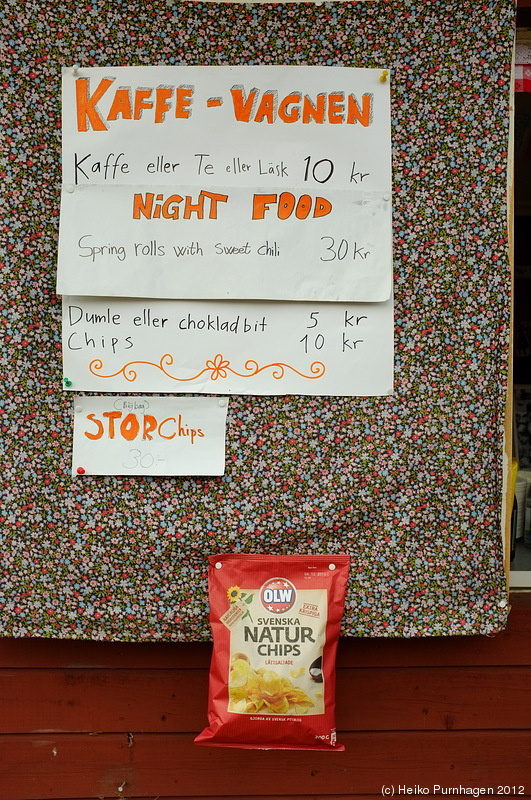 KAFFE - VAGNEN
Kaffe eller Te eller Läsk 10 kr
NIGHT FOOD
Spring rolls with sweet chili 30 kr
Dumle eller chokladbit 5 kr
Chips 10 kr
(Big bag)
STOR Chips
30:-
OLW
EXTRA KRISPIGA
SVENSKA
NATUR
CHIPS
LÄTTSALTADE
GJORDA AV SVENSK POTATIS
200G
(c) Heiko Purnhagen 2012